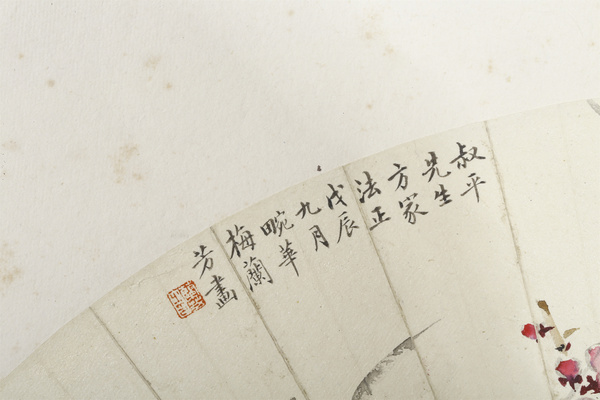 叔平
先生
方家
法正
戊辰
九月
畹華
梅蘭
芳畫